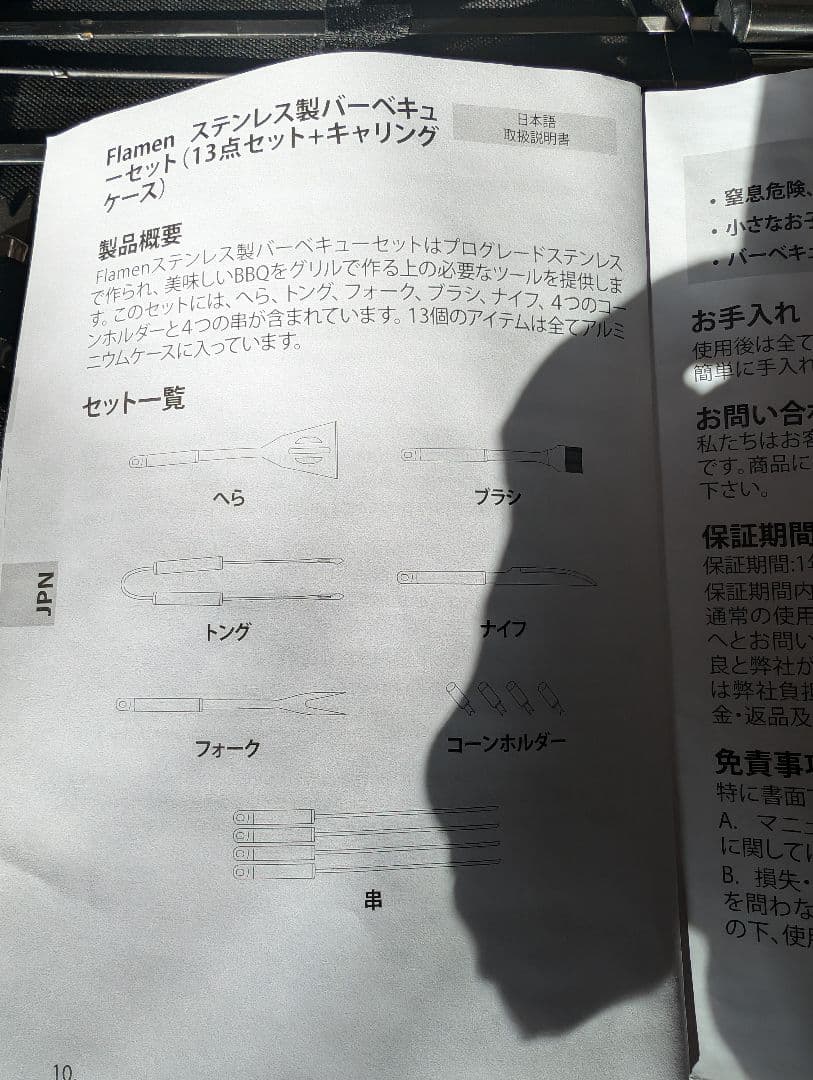 Flamen ステンレス製バーベキュ
ーセット(13点セット+キャリング
ケース)
日本語
取扱説明書
製品概要
Flamenステンレス製バーベキューセットはプログレードステンレス
で作られ、美味しいBBQをグリルで作る上の必要なツールを提供しま
す。このセットには、へら、トング、フォーク、ブラシ、ナイフ、4つのコー
ンホルダーと4つの串が含まれています。13個のアイテムは全てアルミ
ニウムケースに入っています。
セット一覧
へら
ブラシ
トング
ナイフ
フォーク
コーンホルダー
串
JPN
10
・窒息危険、
・小さなお子
・バーベキュ
お手入れ
使用後は全て
簡単に手入れ
お問い合わ
私たちはお客
です。商品に
下さい。
保証期間
保証期間:1年
保証期間内
通常の使用
へとお問い
良と弊社が
は弊社負担
金・返品及
免責事項
特に書面
A. マニュ
に関してい
B. 損失・
を問わな
の下、使用